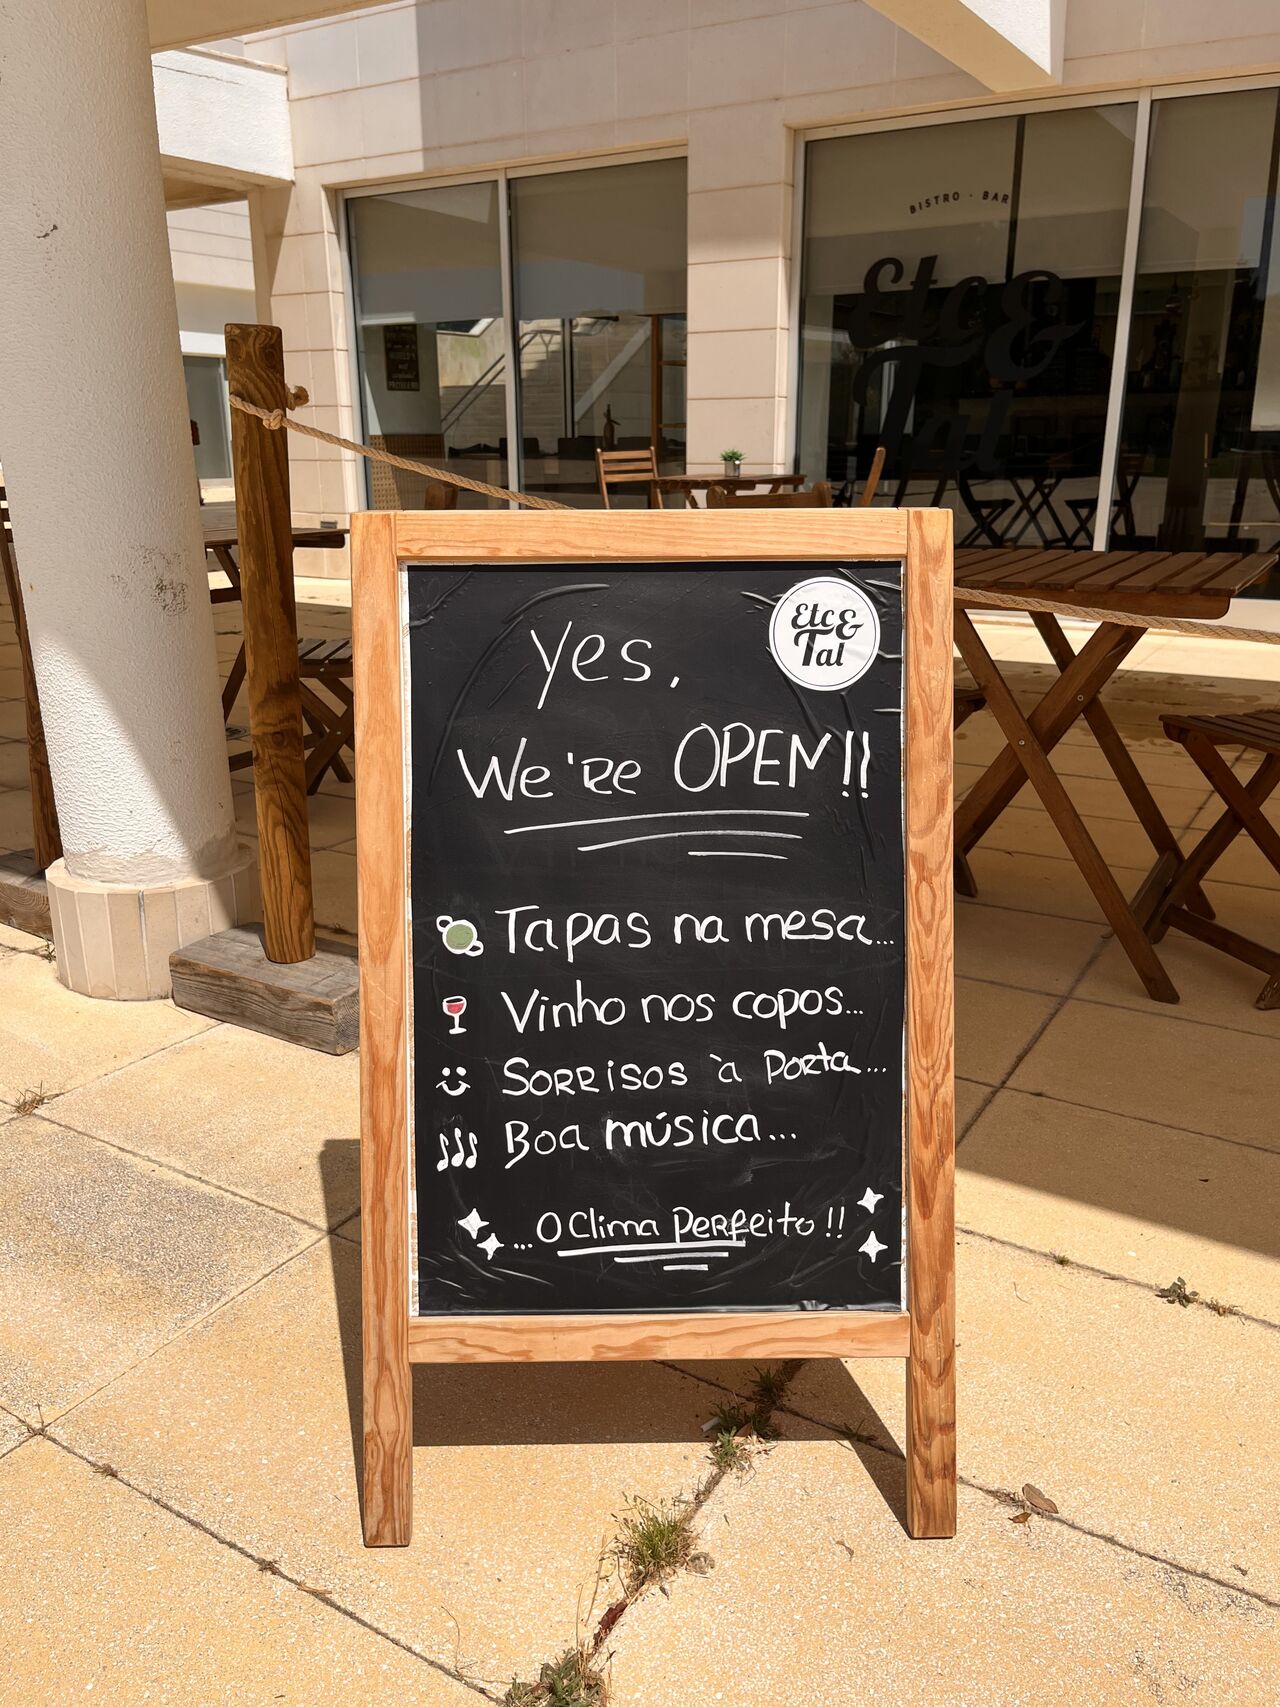 BISTRO · BAR
Etc &
Tal
Etc &
Tal
Yes,
We're OPEN!!
Tapas na mesa...
Vinho nos copos...
Sorrisos à porta...
Boa música...
...O Clima Perfeito!!